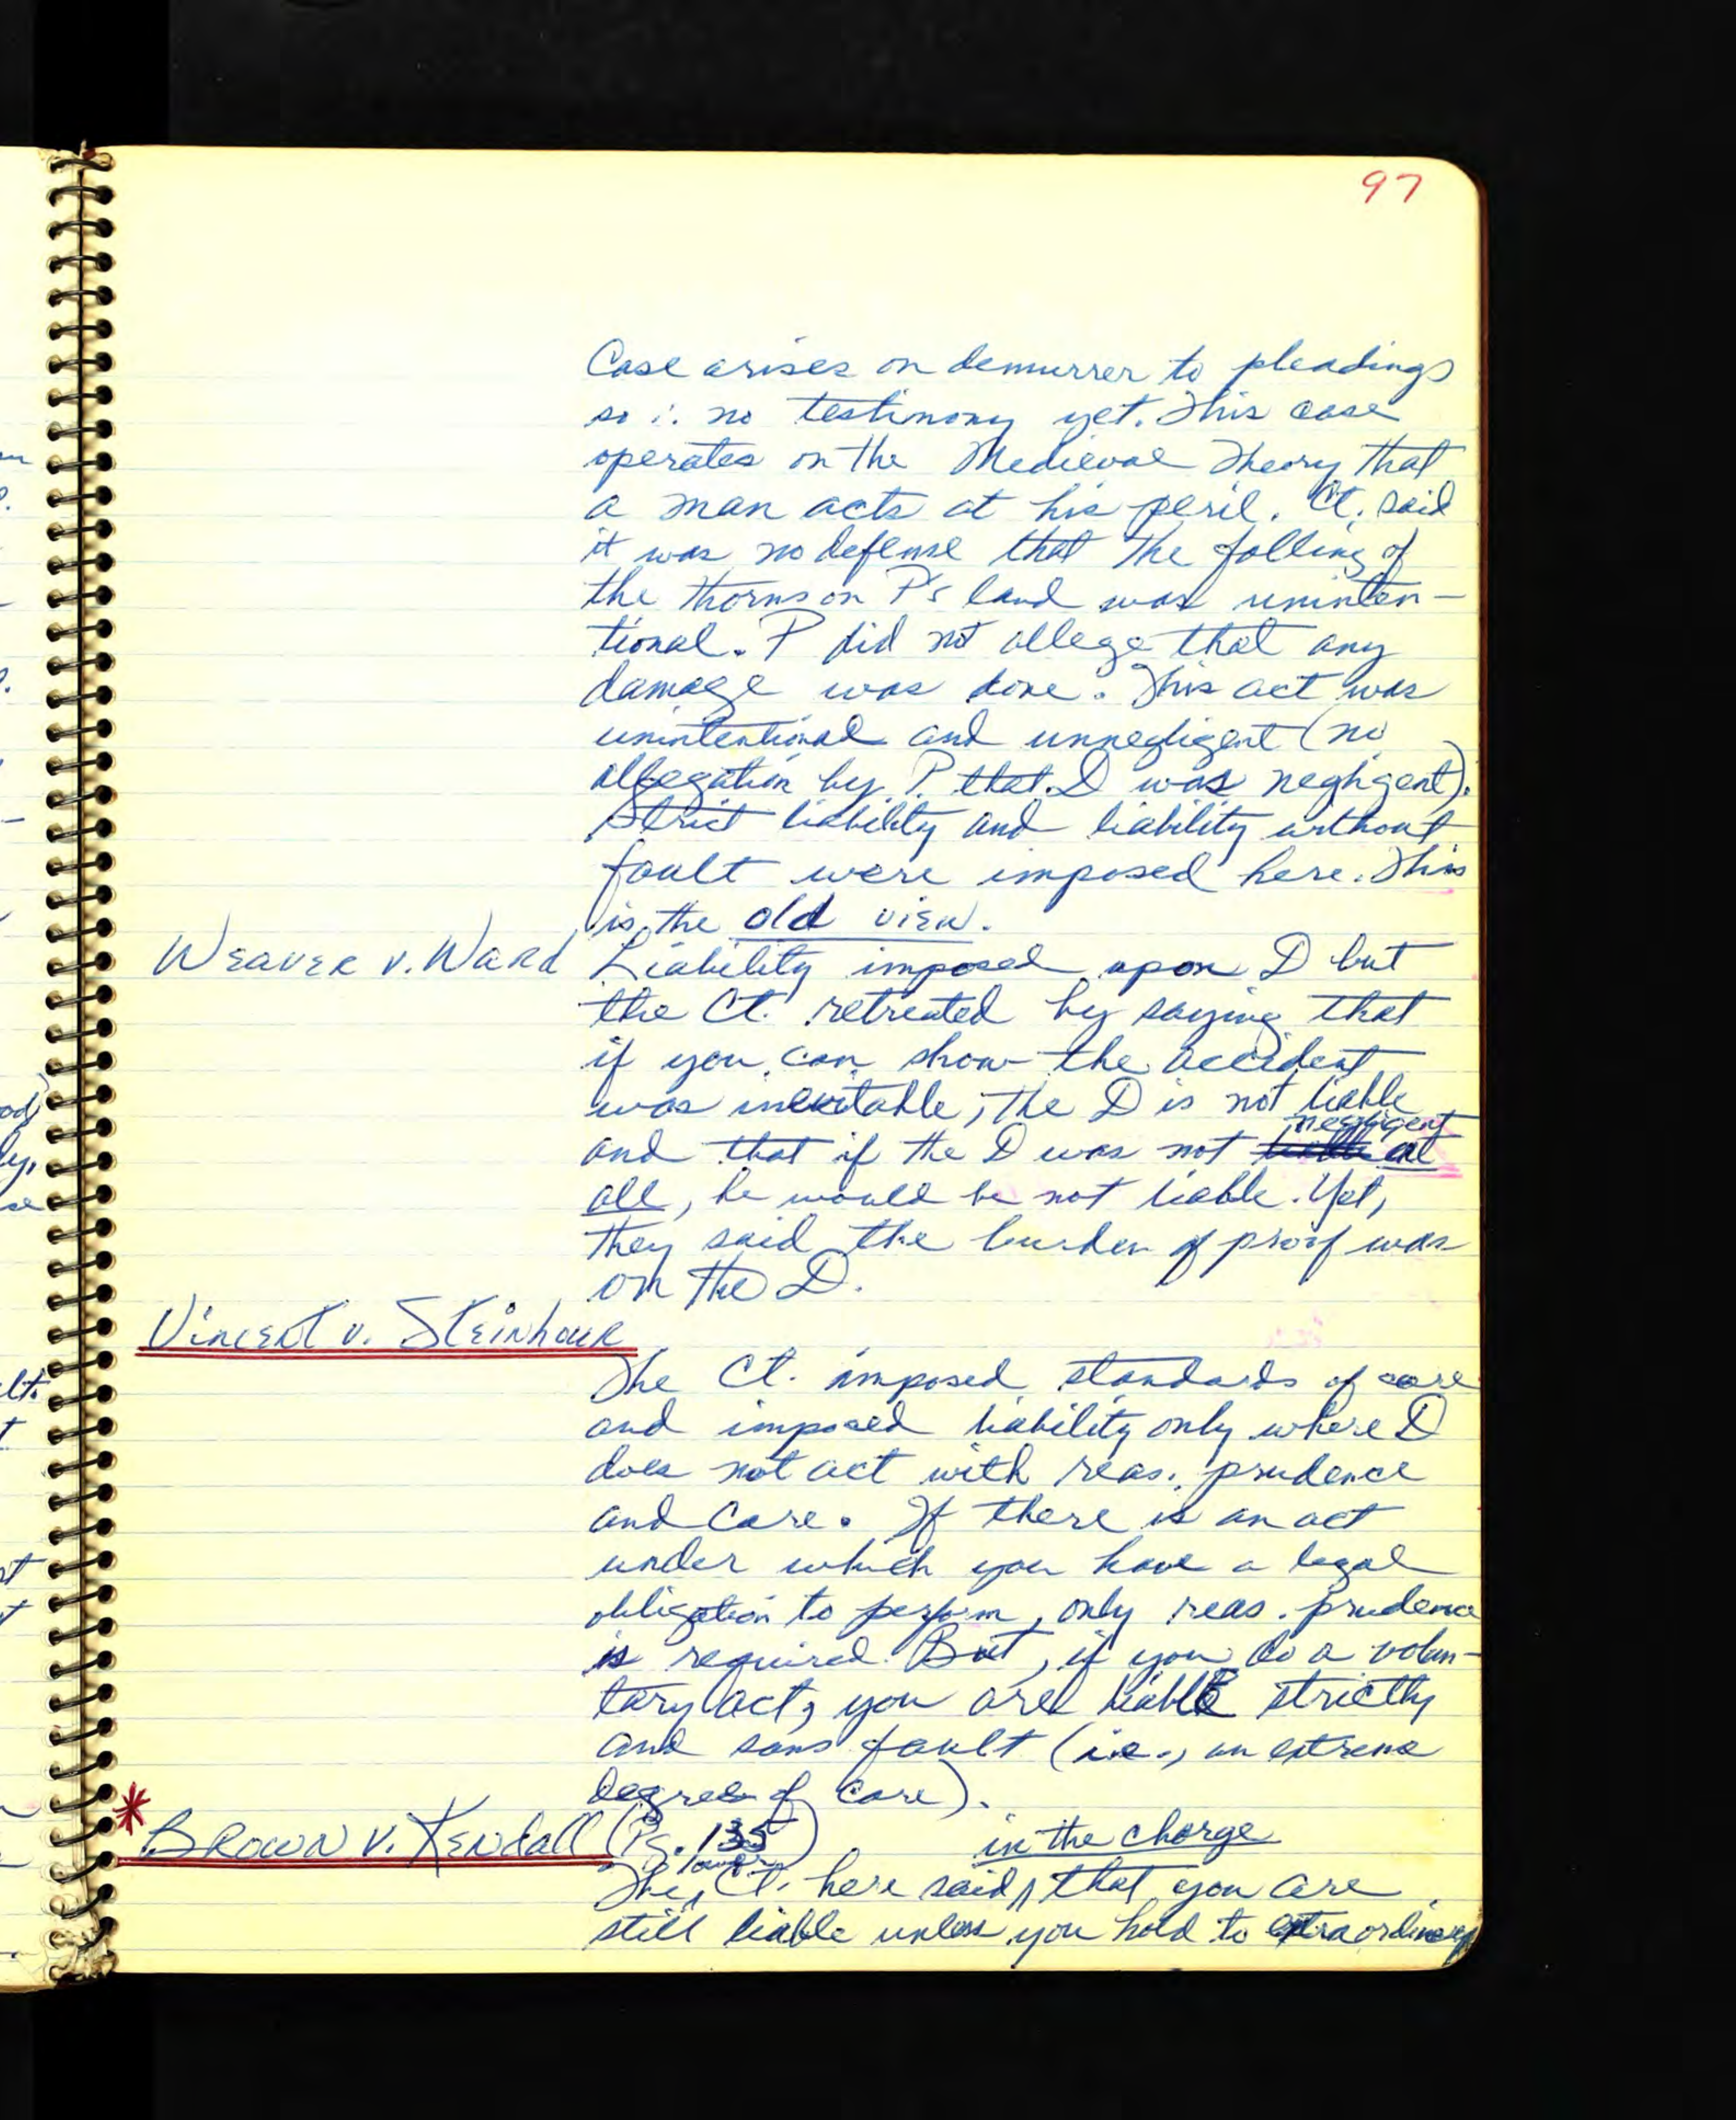 97
Case arises on demurrer to pleadings
so ∴ no testimony yet. This case
operates on the Medieval Theory that
a man acts at his peril. Ct. said
it was no defense that the falling of
the thorns on P's land was uninten-
tional. P did not allege that any
damage was done. This act was
unintentional and unnegligent (no
allegation by P. that D was negligent).
Strict liability and liability without
fault were imposed here. This
is the old view.
Weaver v. Ward Liability imposed upon D but
the Ct. retreated by saying that
if you can show the accident
was inevitable, the D is not liable
and that if the D was not negligent at
all, he would be not liable. Yet,
they said the burden of proof was
on the D.
Vincent v. Steinhour
The Ct. imposed standards of care
and imposed liability only where D
does not act with reas. prudence
and care. If there is an act
under which you have a legal
obligation to perform, only reas. prudence
is required. But, if you do a volun-
tary act, you are liable strictly
and sans fault (i.e., an extreme
degree of care).
* Brown v. Kendall (Pg. 135)
The lower Ct. here said in the charge that you are
still liable unless you hold to extraordinary
od)
ly,
se
lt.
t
st
t